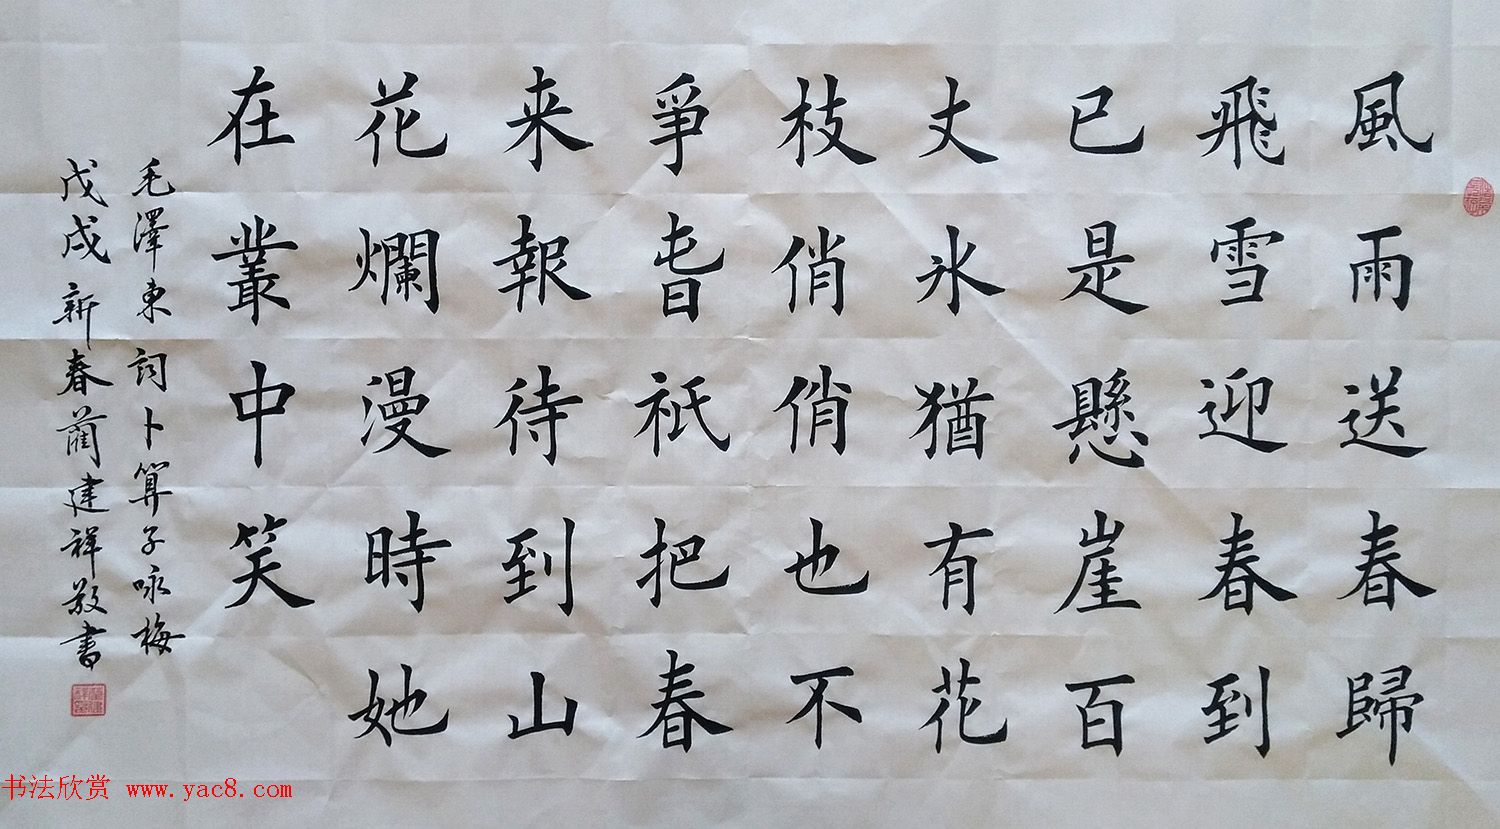 風雨送春歸
飛雪迎春到
已是懸崖百
丈氷猶有花
枝俏俏也不
爭旾祇把春
来報待到山
花爛漫時她
在叢中笑
毛澤東詞卜算子咏梅
戊戌新春藺建祥敬書
书法欣赏 www.yac8.com